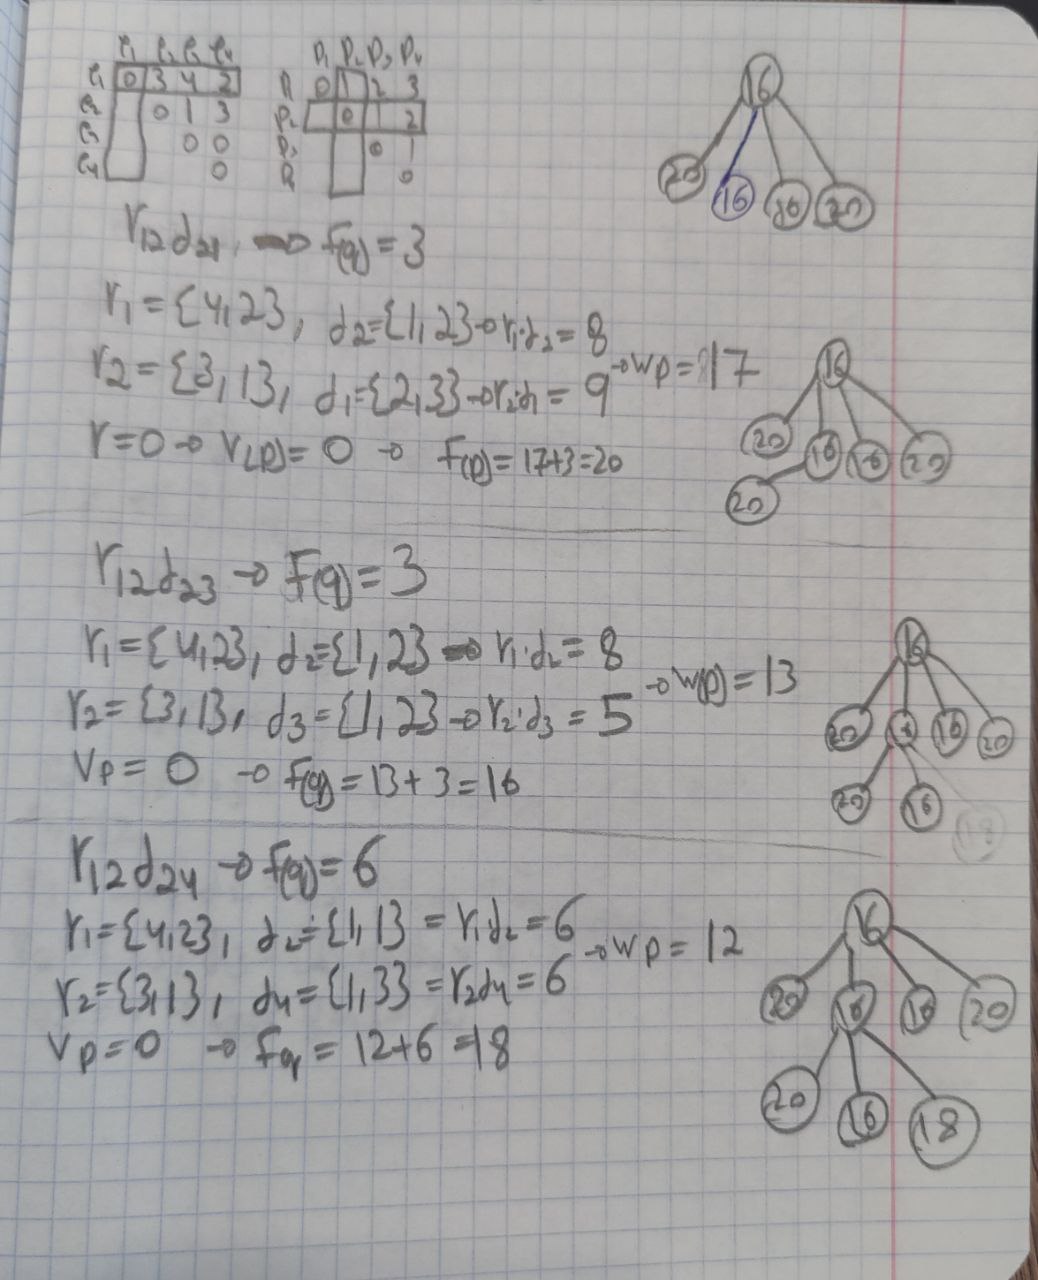 e₁ e₂ e₃ e₄
e₁ 0 3 4 2
e₂ 0 1 3
e₃ 0 0
e₄ 0
P₁ P₂ P₃ P₄
P₁ 0 1 2 3
P₂ 0 1 2
P₃ 0 1
P₄ 0
16
20 16 16 20
r₁₂d₂₁ → f(q) = 3
r₁ = {4,2}, d₂={1,2}→r₁·d₂ = 8
r₂ = {3,1}, d₁={2,3}→r₂·d₁ = 9 → wp = 17
r=0 → V(P)= 0 → f(p)= 17+3=20
16
20 16 16 20
20
r₁₂d₂₃ → f(q) = 3
r₁={4,2}, d₂={1,2} → r₁·d₂ = 8
r₂ = {3,1}, d₃ = {1,2}→r₂·d₃ = 5 → w(p) = 13
Vp = 0 → f(q) = 13+3=16
16
20 16 16 20
20 16 18
r₁₂d₂₄ → f(q) = 6
r₁={4,2}, d₂={1,1} = r₁d₂ = 6
r₂={3,1}, d₄={1,3} = r₂d₄ = 6 → wp = 12
Vp=0 → fq = 12+6 =18
16
20 16 16 20
20 16 18